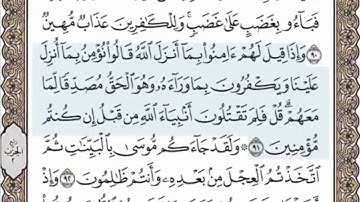 فَبَآءُو بِغَضَبٍ عَلَىٰ غَضَبٍۚ وَلِلْكَٰفِرِينَ عَذَابٌ مُّهِينٌ
٩٠ وَإِذَا قِيلَ لَهُمْ ءَامِنُوا۟ بِمَآ أَنزَلَ ٱللَّهُ قَالُوا۟ نُؤْمِنُ بِمَآ أُنزِلَ
عَلَيْنَا وَيَكْفُرُونَ بِمَا وَرَآءَهُۥ وَهُوَ ٱلْحَقُّ مُصَدِّقًا لِّمَا
مَعَهُمْۗ قُلْ فَلِمَ تَقْتُلُونَ أَنۢبِيَآءَ ٱللَّهِ مِن قَبْلُ إِن كُنتُم
مُّؤْمِنِينَ ٩١ ۞ وَلَقَدْ جَآءَكُم مُّوسَىٰ بِٱلْبَيِّنَٰتِ ثُمَّ
ٱتَّخَذْتُمُ ٱلْعِجْلَ مِنۢ بَعْدِهِۦ وَأَنتُمْ ظَٰلِمُونَ ٩٢ وَإِذْ